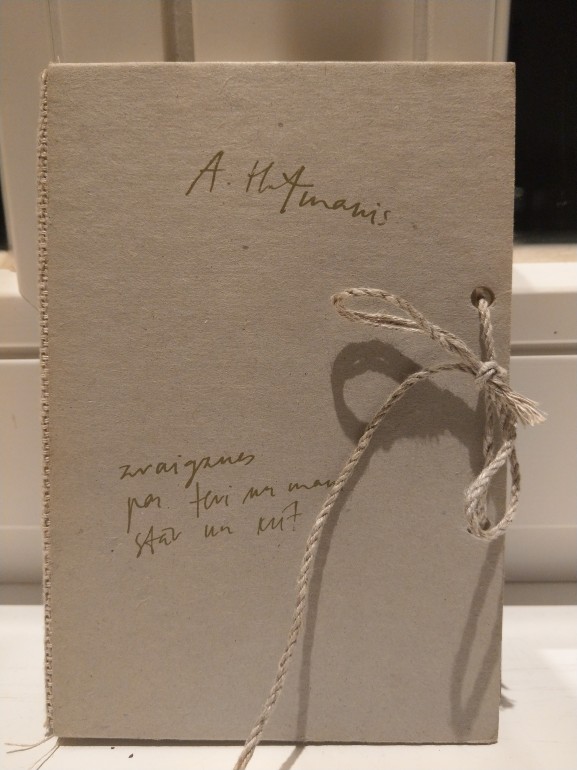 A.
zvaigznes
par tevi un mani
stāv un krīt